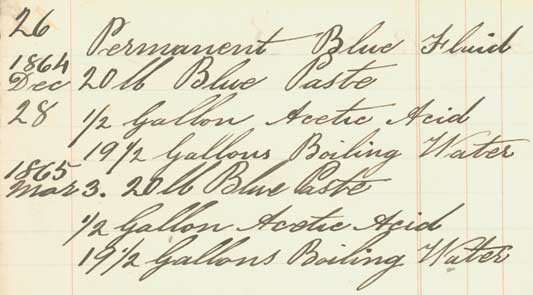 26 Permanent Blue Fluid
1864
Dec 20 lb Blue Paste
28 1/2 Gallon Acetic Acid
19 1/2 Gallons Boiling Water
1865
Mar 3. 20 lb Blue Paste
1/2 Gallon Acetic Acid
19 1/2 Gallons Boiling Water